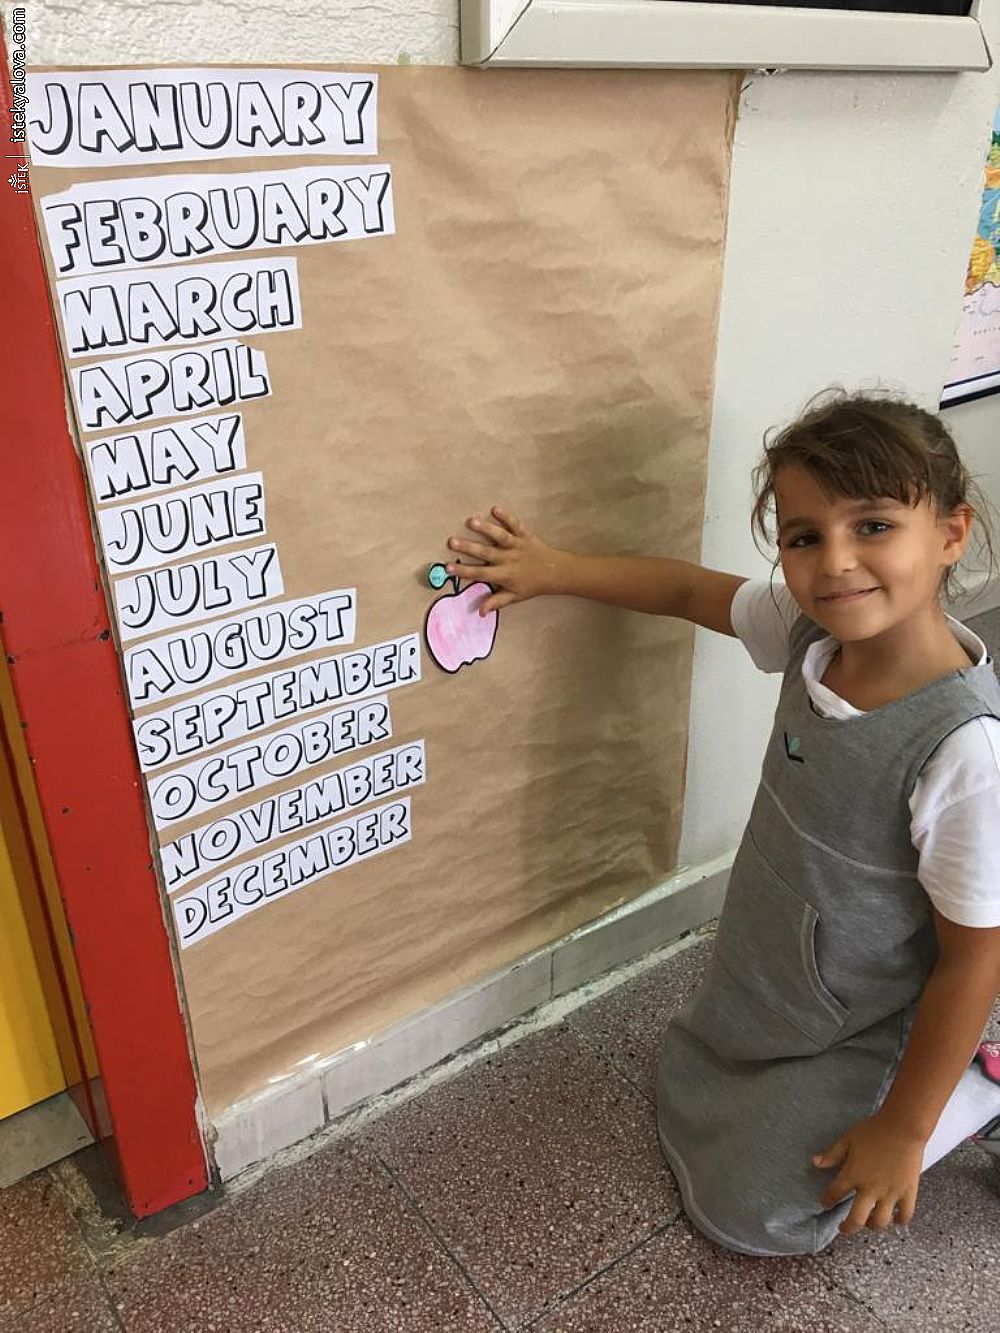 JANUARY
FEBRUARY
MARCH
APRIL
MAY
JUNE
JULY
AUGUST
SEPTEMBER
OCTOBER
NOVEMBER
DECEMBER
İSTEK | istekyalova.com